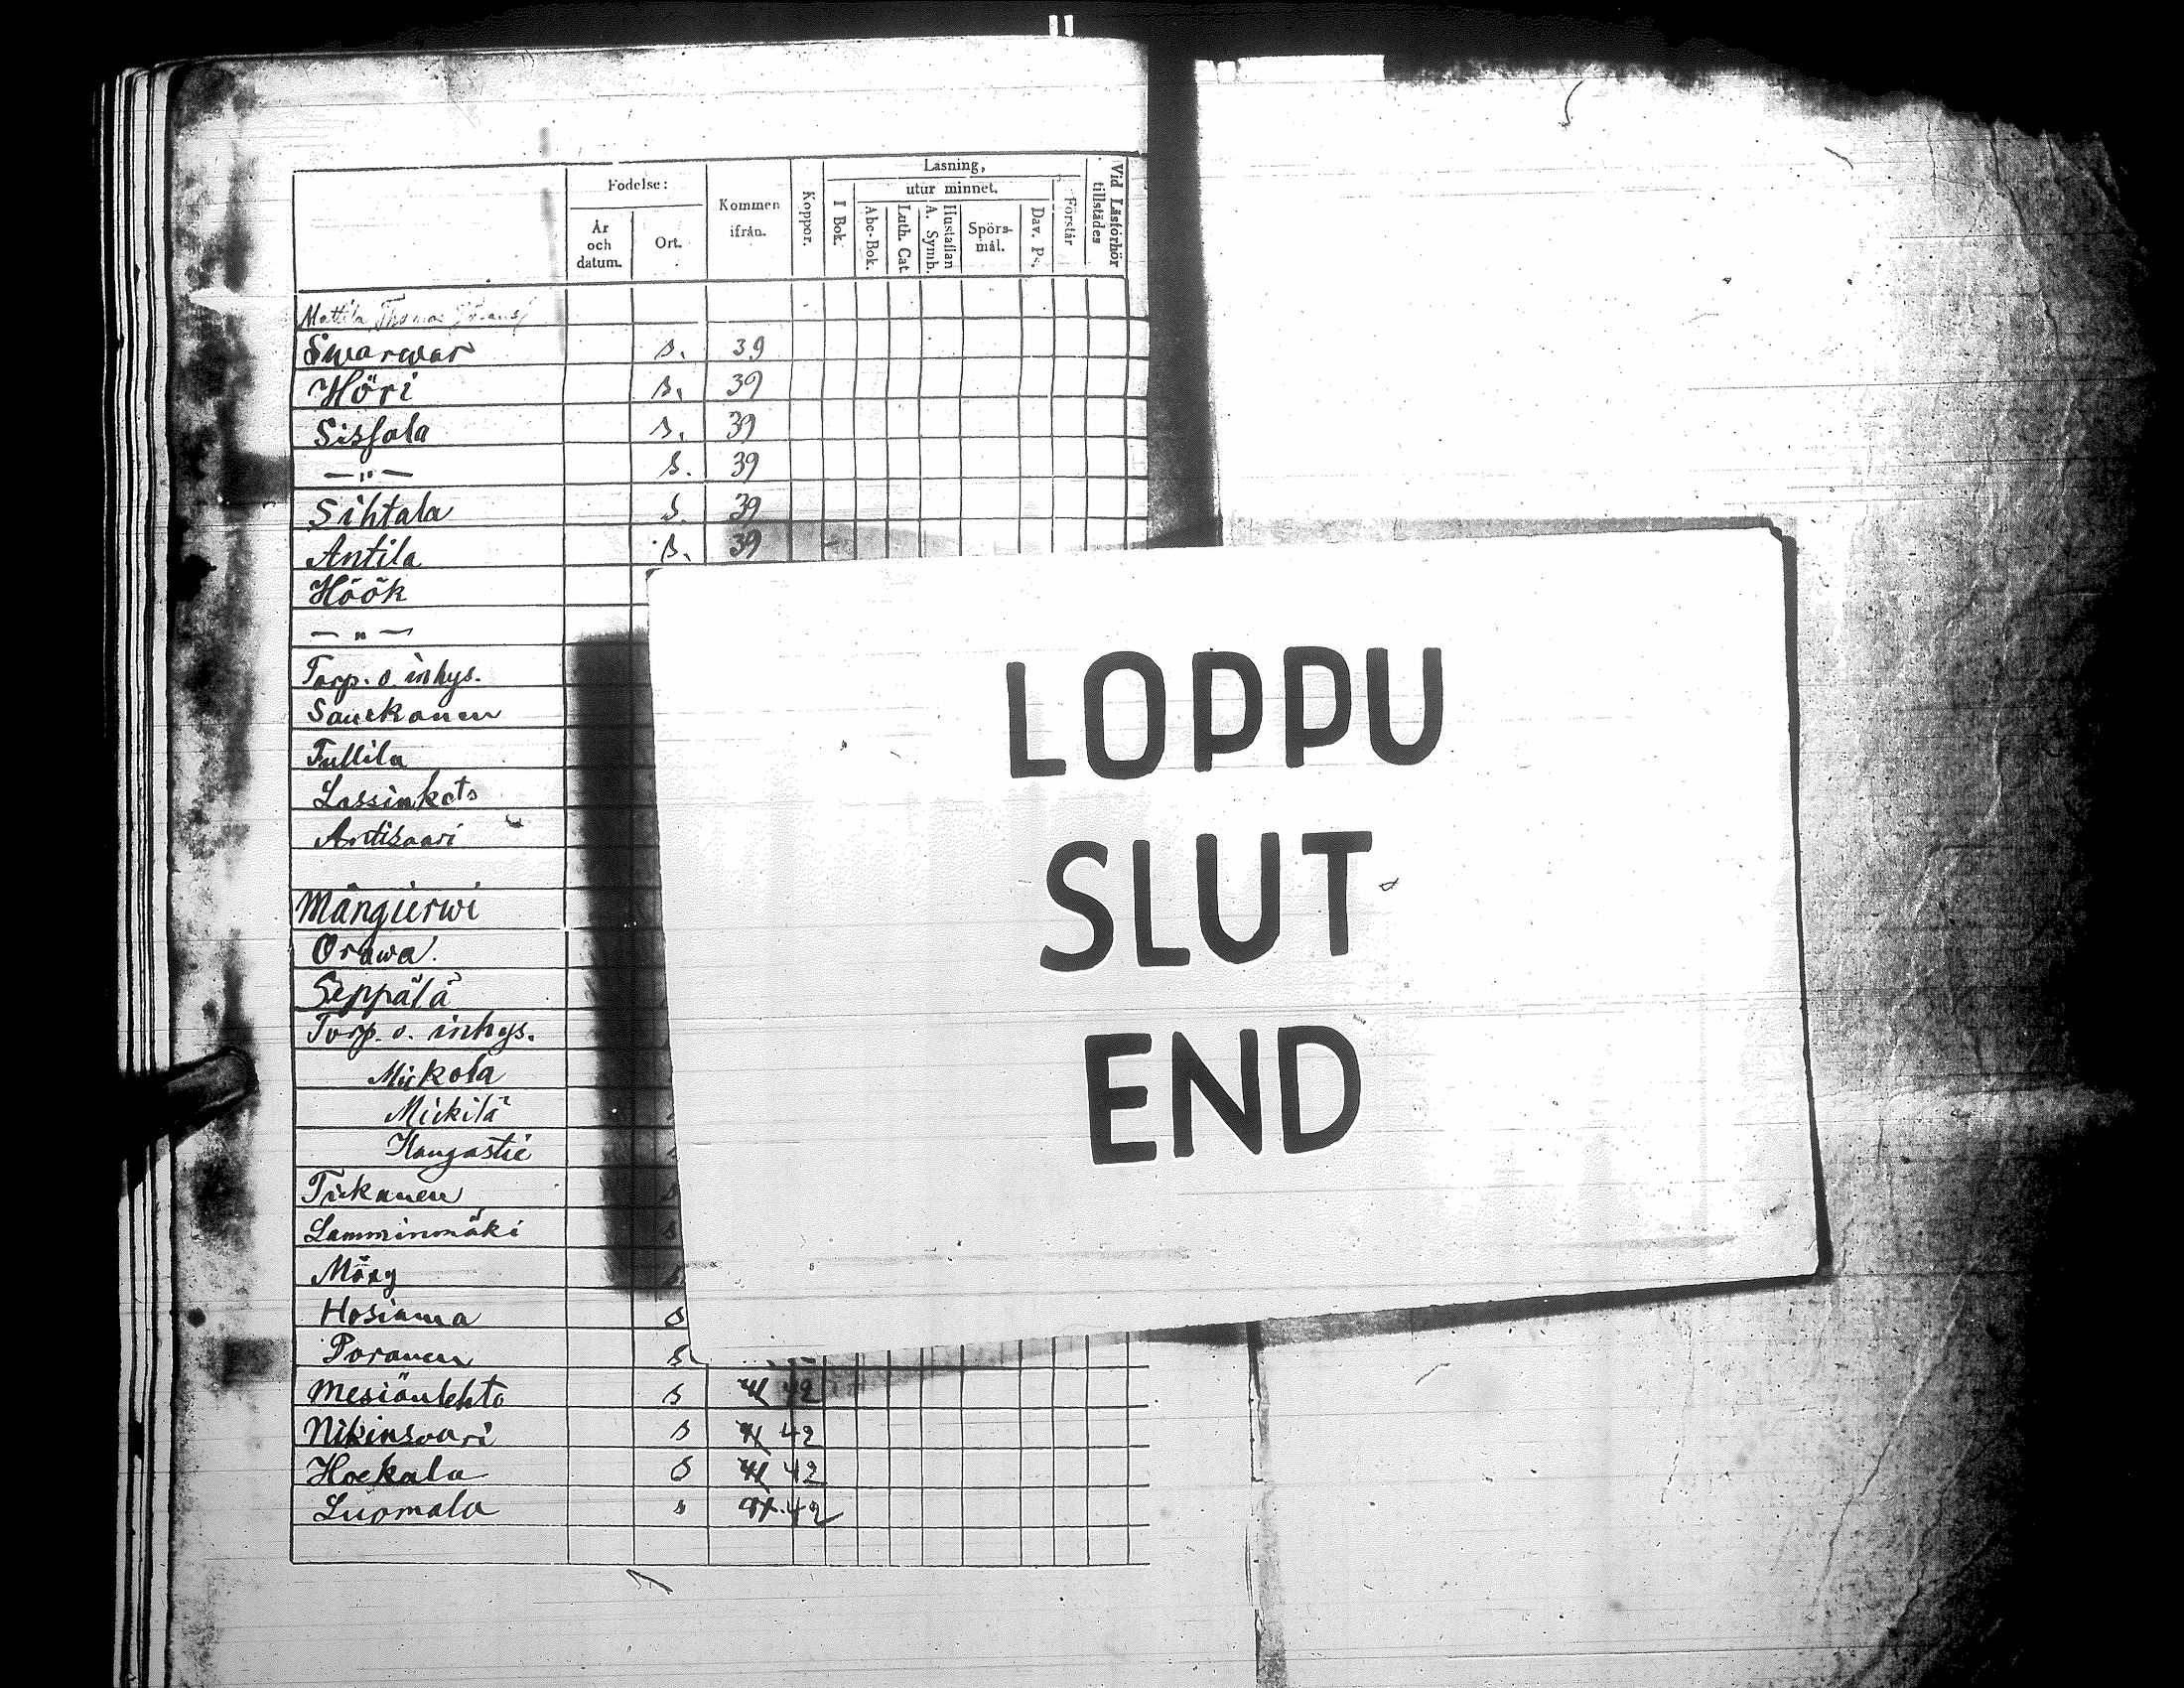 Födelse:
År och datum.
Ort.
Kommen ifrån.
Koppor.
Läsning,
I Bok.
utur minnet.
Abc-Bok.
Luth. Cat.
A. Symb. Hustaflan
Spörs-mål.
Dav. Ps.
Förstår
Vid Läsförhör tillstädes
Mattila Thomas
Swarwar s. 39
Höri s. 39
Sissala s. 39
— „ — s. 39
Sihtala s. 39
Antila s. 39
Höök
— „ —
Torp. o inhys.
Sauckonen
Tullila
Lassinkato
Antisaari
Mångierwi
Orawa.
Seppälä
Torp. o. inhys.
Mickola
Mickilä
Kangastie
Tickanen
Lamminmäki s
Möxy s
Hosianna s
Poranen s
Mesiänlehto s 41 42
Nikinsaari s 41 42
Hoekala s 41 42
Luomala s 41. 42
LOPPU
SLUT
END